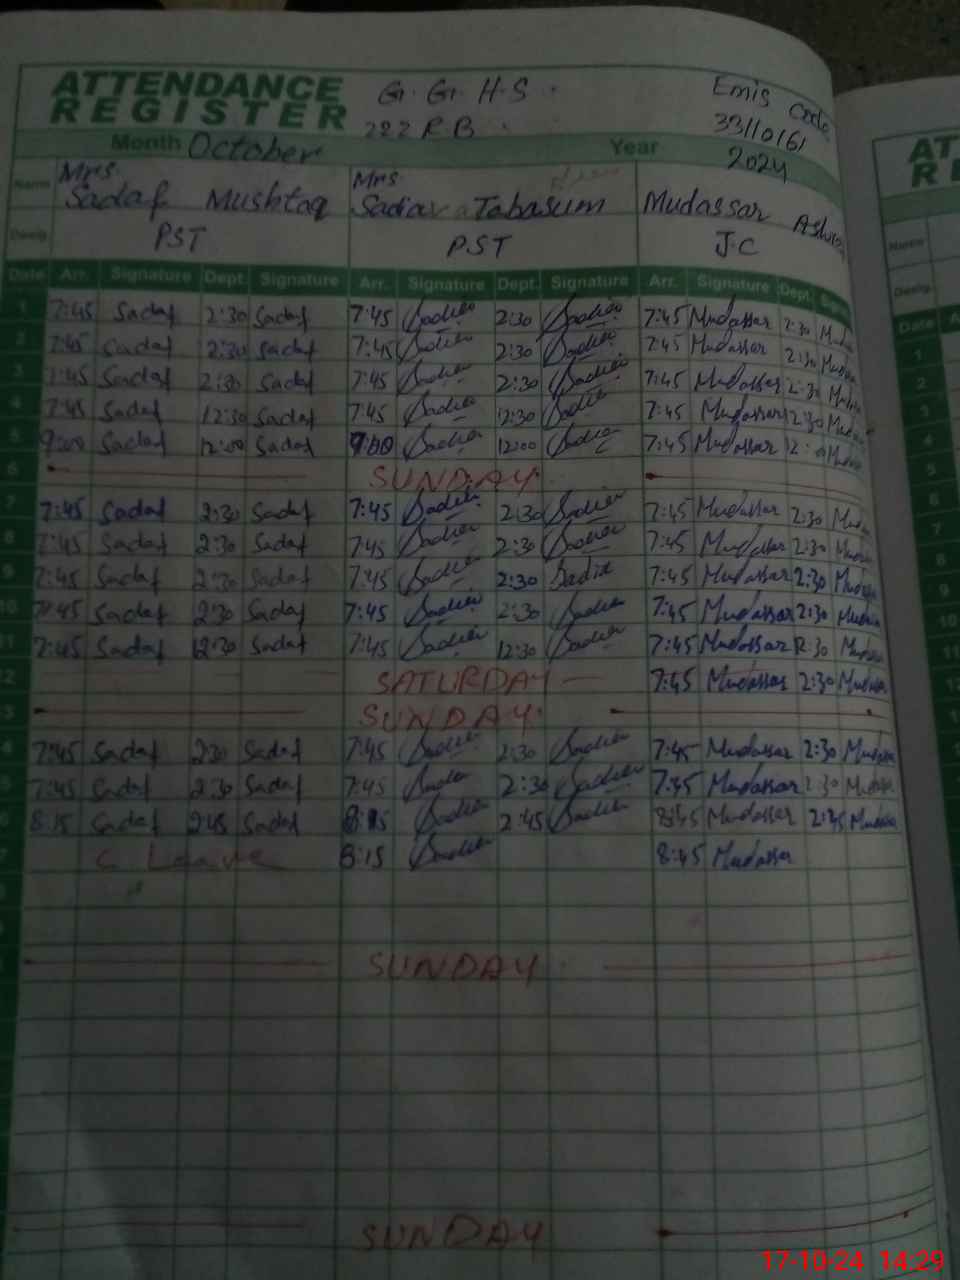 ATTENDANCE REGISTER G. G. H.S Emis Code
222 R.B 33110161
Month October Year 2024
Name Mrs. Sadaf Mushtaq Mrs Sadia Tabasum Mudassar
Desig. PST PST J.C
Date Arr. Signature Dept. Signature Arr. Signature Dept. Signature Arr. Signature Dept.
1 7:45 Sadaf 2:30 Sadaf 7:45 Sadia 2:30 Sadia 7:45 Mudassar 2:30
2 7:45 Sadaf 2:30 Sadaf 7:45 Sadia 2:30 Sadia 7:45 Mudassar 2:30
3 7:45 Sadaf 2:30 Sadaf 7:45 Sadia 2:30 Sadia 7:45 Mudassar 2:30
4 7:45 Sadaf 12:30 Sadaf 7:45 Sadia 12:30 Sadia 7:45 Mudassar 12:30
5 9:00 Sadaf 12:00 Sadaf 9:00 Sadia 12:00 Sadia 7:45 Mudassar
6 SUNDAY
7 7:45 Sadaf 2:30 Sadaf 7:45 Sadia 2:30 Sadia 7:45 Mudassar 2:30
8 7:45 Sadaf 2:30 Sadaf 7:45 Sadia 2:30 Sadia 7:45 Mudassar 2:30
9 7:45 Sadaf 2:30 Sadaf 7:45 Sadia 2:30 Sadia 7:45 Mudassar 2:30
10 7:45 Sadaf 2:30 Sadaf 7:45 Sadia 2:30 Sadia 7:45 Mudassar 2:30
11 7:45 Sadaf 12:30 Sadaf 7:45 Sadia 12:30 Sadia 7:45 Mudassar 12:30
12 SATURDAY 7:45 Mudassar 2:30
3 SUNDAY
4 7:45 Sadaf 2:30 Sadaf 7:45 Sadia 2:30 Sadia 7:45 Mudassar 2:30
5 7:45 Sadaf 2:30 Sadaf 7:45 Sadia 2:30 Sadia 7:45 Mudassar 2:30
6 8:15 Sadaf 2:45 Sadaf 8:15 Sadia 2:45 Sadia Mudassar 2:45
7 C Leave 8:15 Sadia 8:45 Mudassar
SUNDAY
SUNDAY
Name
Desig.
Date
1
2
3
4
5
6
7
8
9
10
11
12
17-10-24 14:29